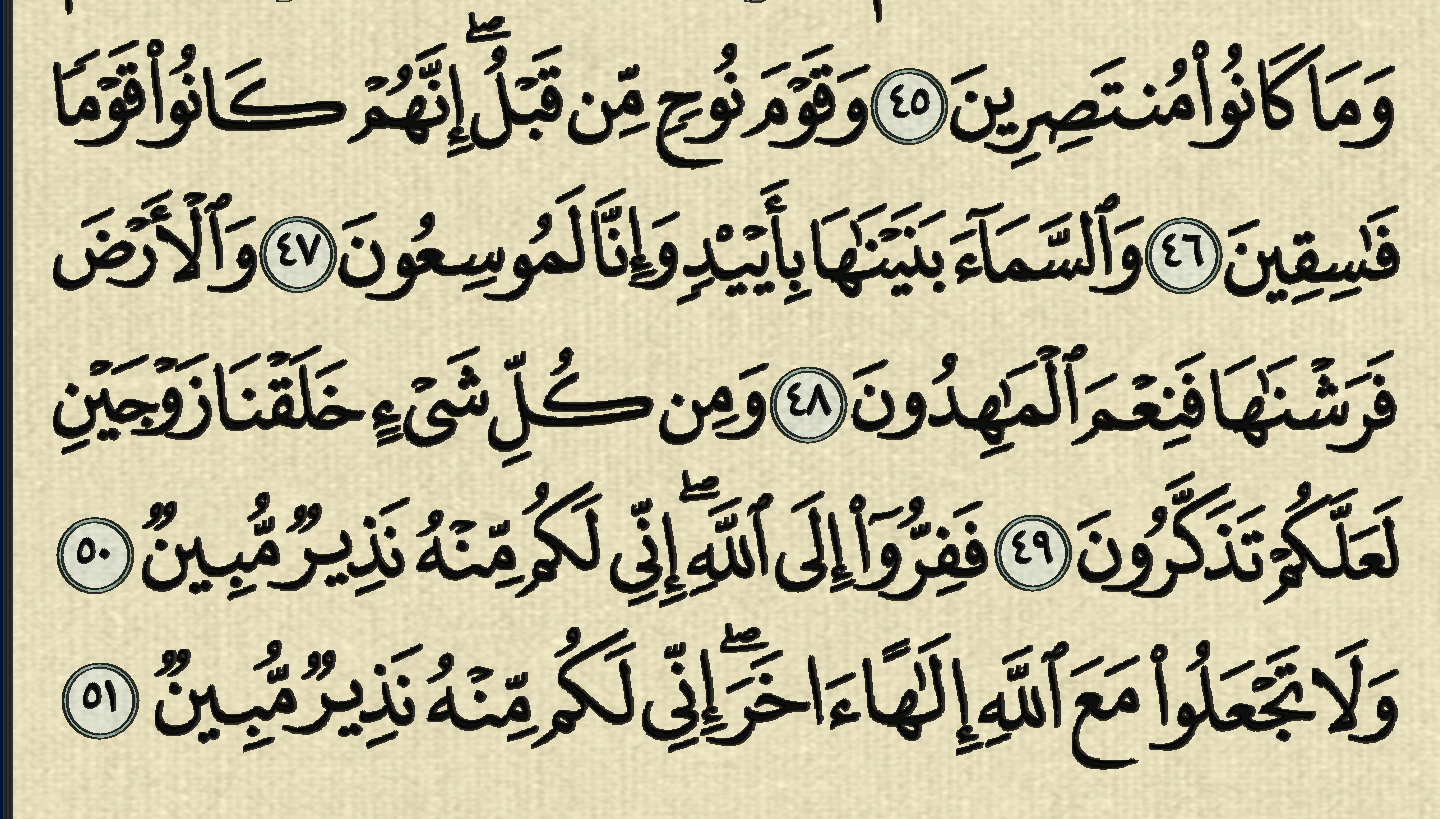 وَمَا كَانُوا۟ مُنتَصِرِينَ ٤٥ وَقَوْمَ نُوحٍ مِّن قَبْلُ ۖ إِنَّهُمْ كَانُوا۟ قَوْمًا
فَـٰسِقِينَ ٤٦ وَٱلسَّمَآءَ بَنَيْنَـٰهَا بِأَيْي۟دٍ وَإِنَّا لَمُوسِعُونَ ٤٧ وَٱلْأَرْضَ
فَرَشْنَـٰهَا فَنِعْمَ ٱلْمَـٰهِدُونَ ٤٨ وَمِن كُلِّ شَىْءٍ خَلَقْنَا زَوْجَيْنِ
لَعَلَّكُمْ تَذَكَّرُونَ ٤٩ فَفِرُّوٓا۟ إِلَى ٱللَّهِ ۖ إِنِّى لَكُم مِّنْهُ نَذِيرٌ مُّبِينٌ ٥٠
وَلَا تَجْعَلُوا۟ مَعَ ٱللَّهِ إِلَـٰهًا ءَاخَرَ ۖ إِنِّى لَكُم مِّنْهُ نَذِيرٌ مُّبِينٌ ٥١